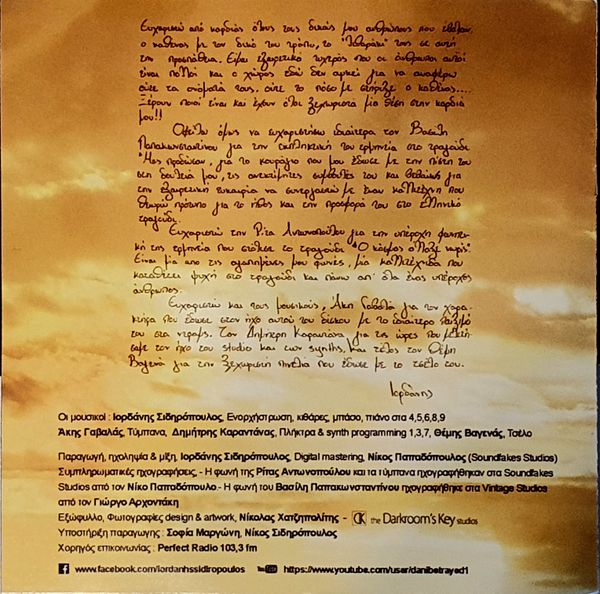 Ευχαριστώ από καρδιάς όλους τους δικούς μου ανθρώπους που έβαλαν,
ο καθένας με τον δικό του τρόπο, το "λιθαράκι" τους σε αυτή
την προσπάθεια. Είμαι εξαιρετικά τυχερός που οι άνθρωποι αυτοί
είναι πολλοί και ο χώρος εδώ δεν αρκεί για να αναφέρω
ούτε τα ονόματά τους, ούτε το πόσο με στήριξε ο καθένας....
Ξέρουν ποιοί είναι και έχουν όλοι ξεχωριστά μία θέση στην καρδιά
μου!!
Οφείλω όμως να ευχαριστήσω ιδιαίτερα τον Βασίλη
Παπακωνσταντίνου για την εκπληκτική του ερμηνεία στο τραγούδι
"Μας πρόδωσαν", για το κουράγιο που μου έδωσε με την πίστη του
στη δουλειά μου, τις ανεκτίμητες συμβουλές του και βεβαίως για
την εξαιρετική ευκαιρία να συνεργαστώ με έναν καλλιτέχνη που
θεωρώ πρότυπο για το ήθος και την προσφορά του στο Ελληνικό
τραγούδι.
Ευχαριστώ την Ρίτα Αντωνοπούλου για την υπέροχη φωνητι-
κή της ερμηνεία που στόλισε το τραγούδι "Ο κόσμος άλλαξε νωρίς".
Είναι μία από τις αγαπημένες μου φωνές, μία καλλιτέχνιδα που
καταθέτει ψυχή στο τραγούδι και πάνω απ' όλα ένας υπέροχος
άνθρωπος.
Ευχαριστώ και τους μουσικούς, Άκη Γαβαλά για τον χαρα-
κτήρα που έδωσε στον ήχο αυτού του δίσκου με το ιδιαίτερο παίξιμό
του στα ντραμς. Τον Δημήτρη Καραντάνα για τις ώρες που
τον ήχο του studio και των synths, και τέλος τον Θέμη
Βαγενά για την ξεχωριστή πινελιά που έδωσε με το τσέλο του.
Ιορδάνης
Οι μουσικοί : Ιορδάνης Σιδηρόπουλος, Ενορχήστρωση, κιθάρες, μπάσο, πιάνο στα 4,5,6,8,9
Άκης Γαβαλάς, Τύμπανα, Δημήτρης Καραντάνας, Πλήκτρα & synth programming 1,3,7, Θέμης Βαγενάς, Τσέλο
Παραγωγή, ηχοληψία & μίξη, Ιορδάνης Σιδηρόπουλος, Digital mastering, Νίκος Παπαδόπουλος (Soundfakes Studios)
Συμπληρωματικές ηχογραφήσεις, - Η φωνή της Ρίτας Αντωνοπούλου και τα τύμπανα ηχογραφήθηκαν στα Soundfakes
Studios από τον Νίκο Παπαδόπουλο.- Η φωνή του Βασίλη Παπακωνσταντίνου ηχογραφήθηκε στα Vintage Studios
από τον Γιώργο Αρχοντάκη
Εξώφυλλο, Φωτογραφίες design & artwork, Νίκολας Χατζηπολίτης - DK the Darkroom's Key studios
Υποστήριξη παραγωγης : Σοφία Μαργώνη, Νίκος Σιδηρόπουλος
Χορηγός επικοινωνίας : Perfect Radio 103,3 fm
www.facebook.com/iordanhssidiropoulos https://www.youtube.com/user/danibetrayed1